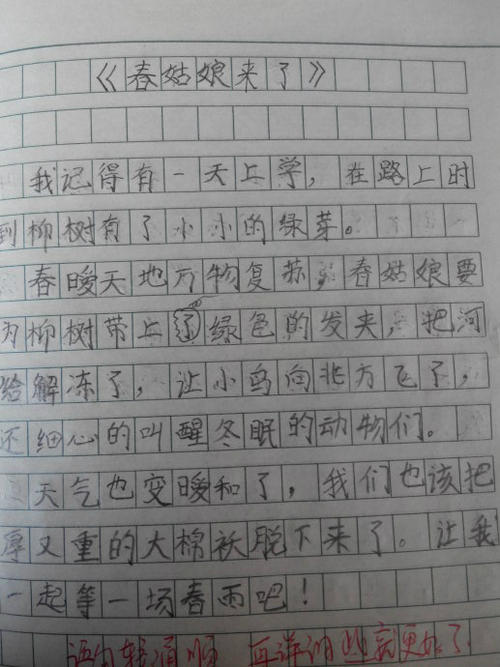 《春姑娘来了》
我记得有一天上学，在路上时
到柳树有了小小的绿芽。
春暧天地万物复苏，春姑娘要
为柳树带上了绿色的发夹，把河
给解冻了，让小鸟向北方飞了，
还细心的叫醒冬眠的动物们。
天气也变暧和了，我们也该把
厚又重的大棉袄脱下来了。让我
一起等一场春雨吧！
语句较通顺 再详细些就更好了